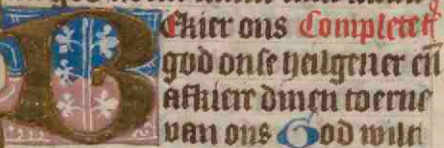 Bekier ons Completen
god onse heilgever en̄
afkierr dinen toerne
van ons God wilt